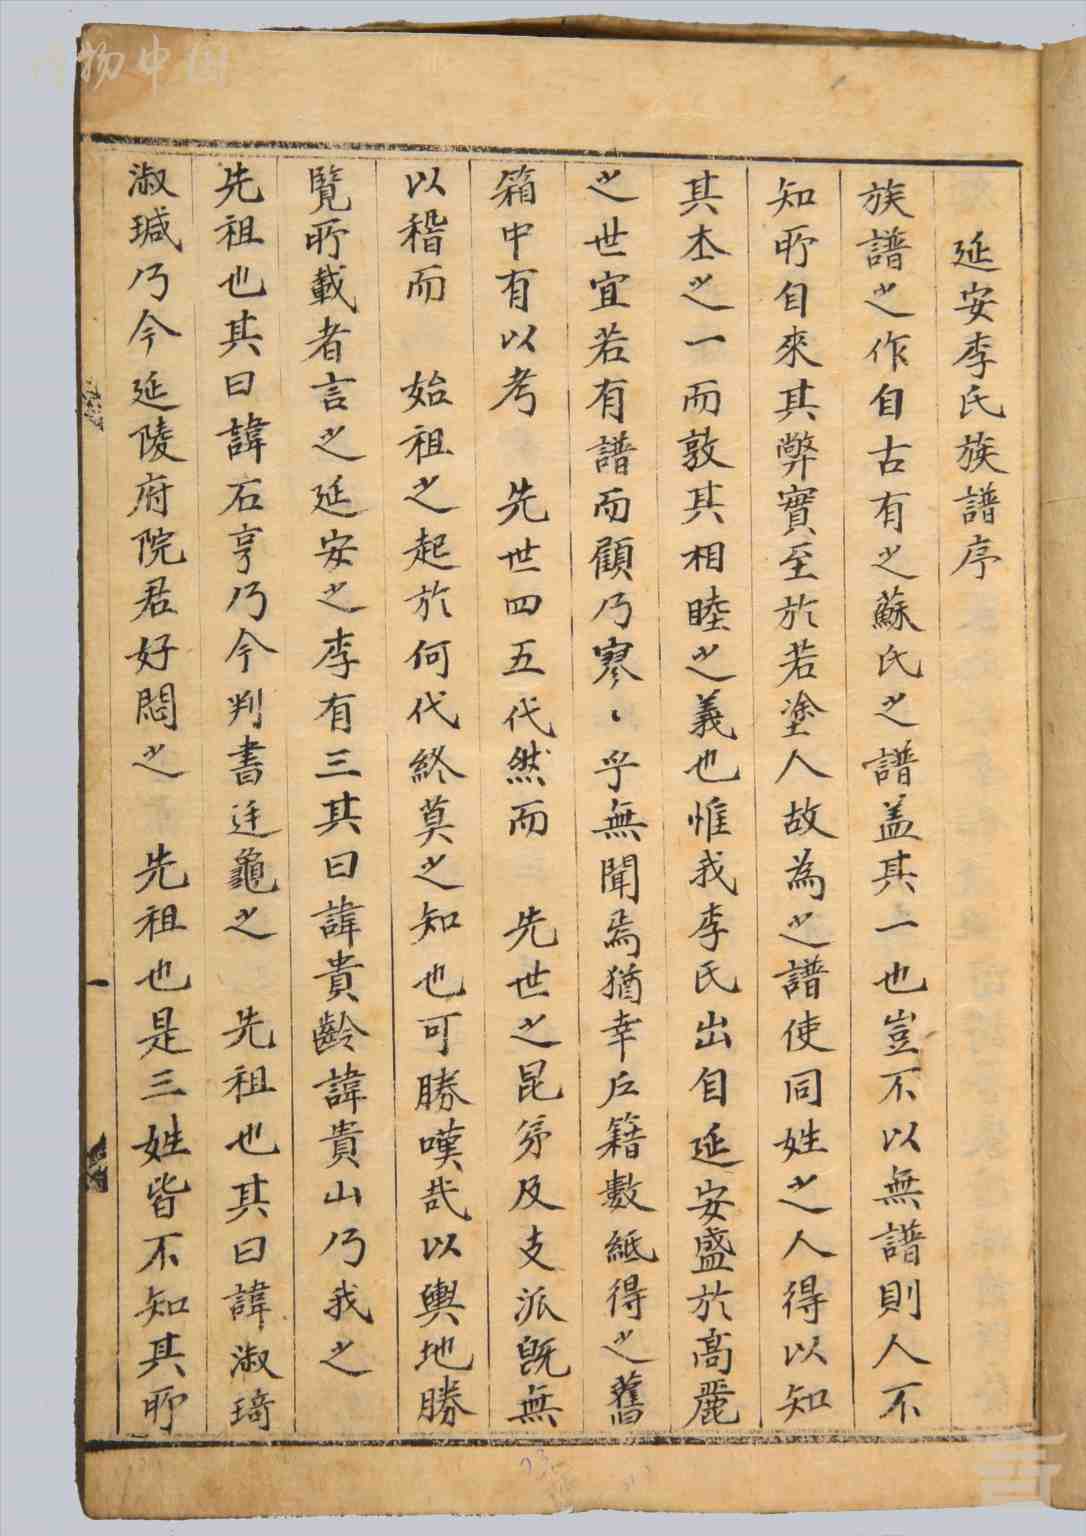 延安李氏族譜序
族譜之作自古有之蘇氏之譜盖其一也豈不以無譜則人不
知所自來其弊實至於若塗人故為之譜使同姓之人得以知
其本之一而敦其相睦之義也惟我李氏出自延安盛於高麗
之世宜若有譜而顧乃寥〻乎無聞焉猶幸戶籍數紙得之舊
箱中有以考　先世四五代然而　先世之昆弟及支派旣無
以稽而　始祖之起於何代終莫之知也可勝嘆哉以輿地勝
覽所載者言之延安之李有三其曰諱貴齡諱貴山乃我之
先祖也其曰諱石亨乃今判書廷龜之　先祖也其曰諱淑琦
淑瑊乃今延陵府院君好閔之　先祖也是三姓皆不知其所
一
物中国